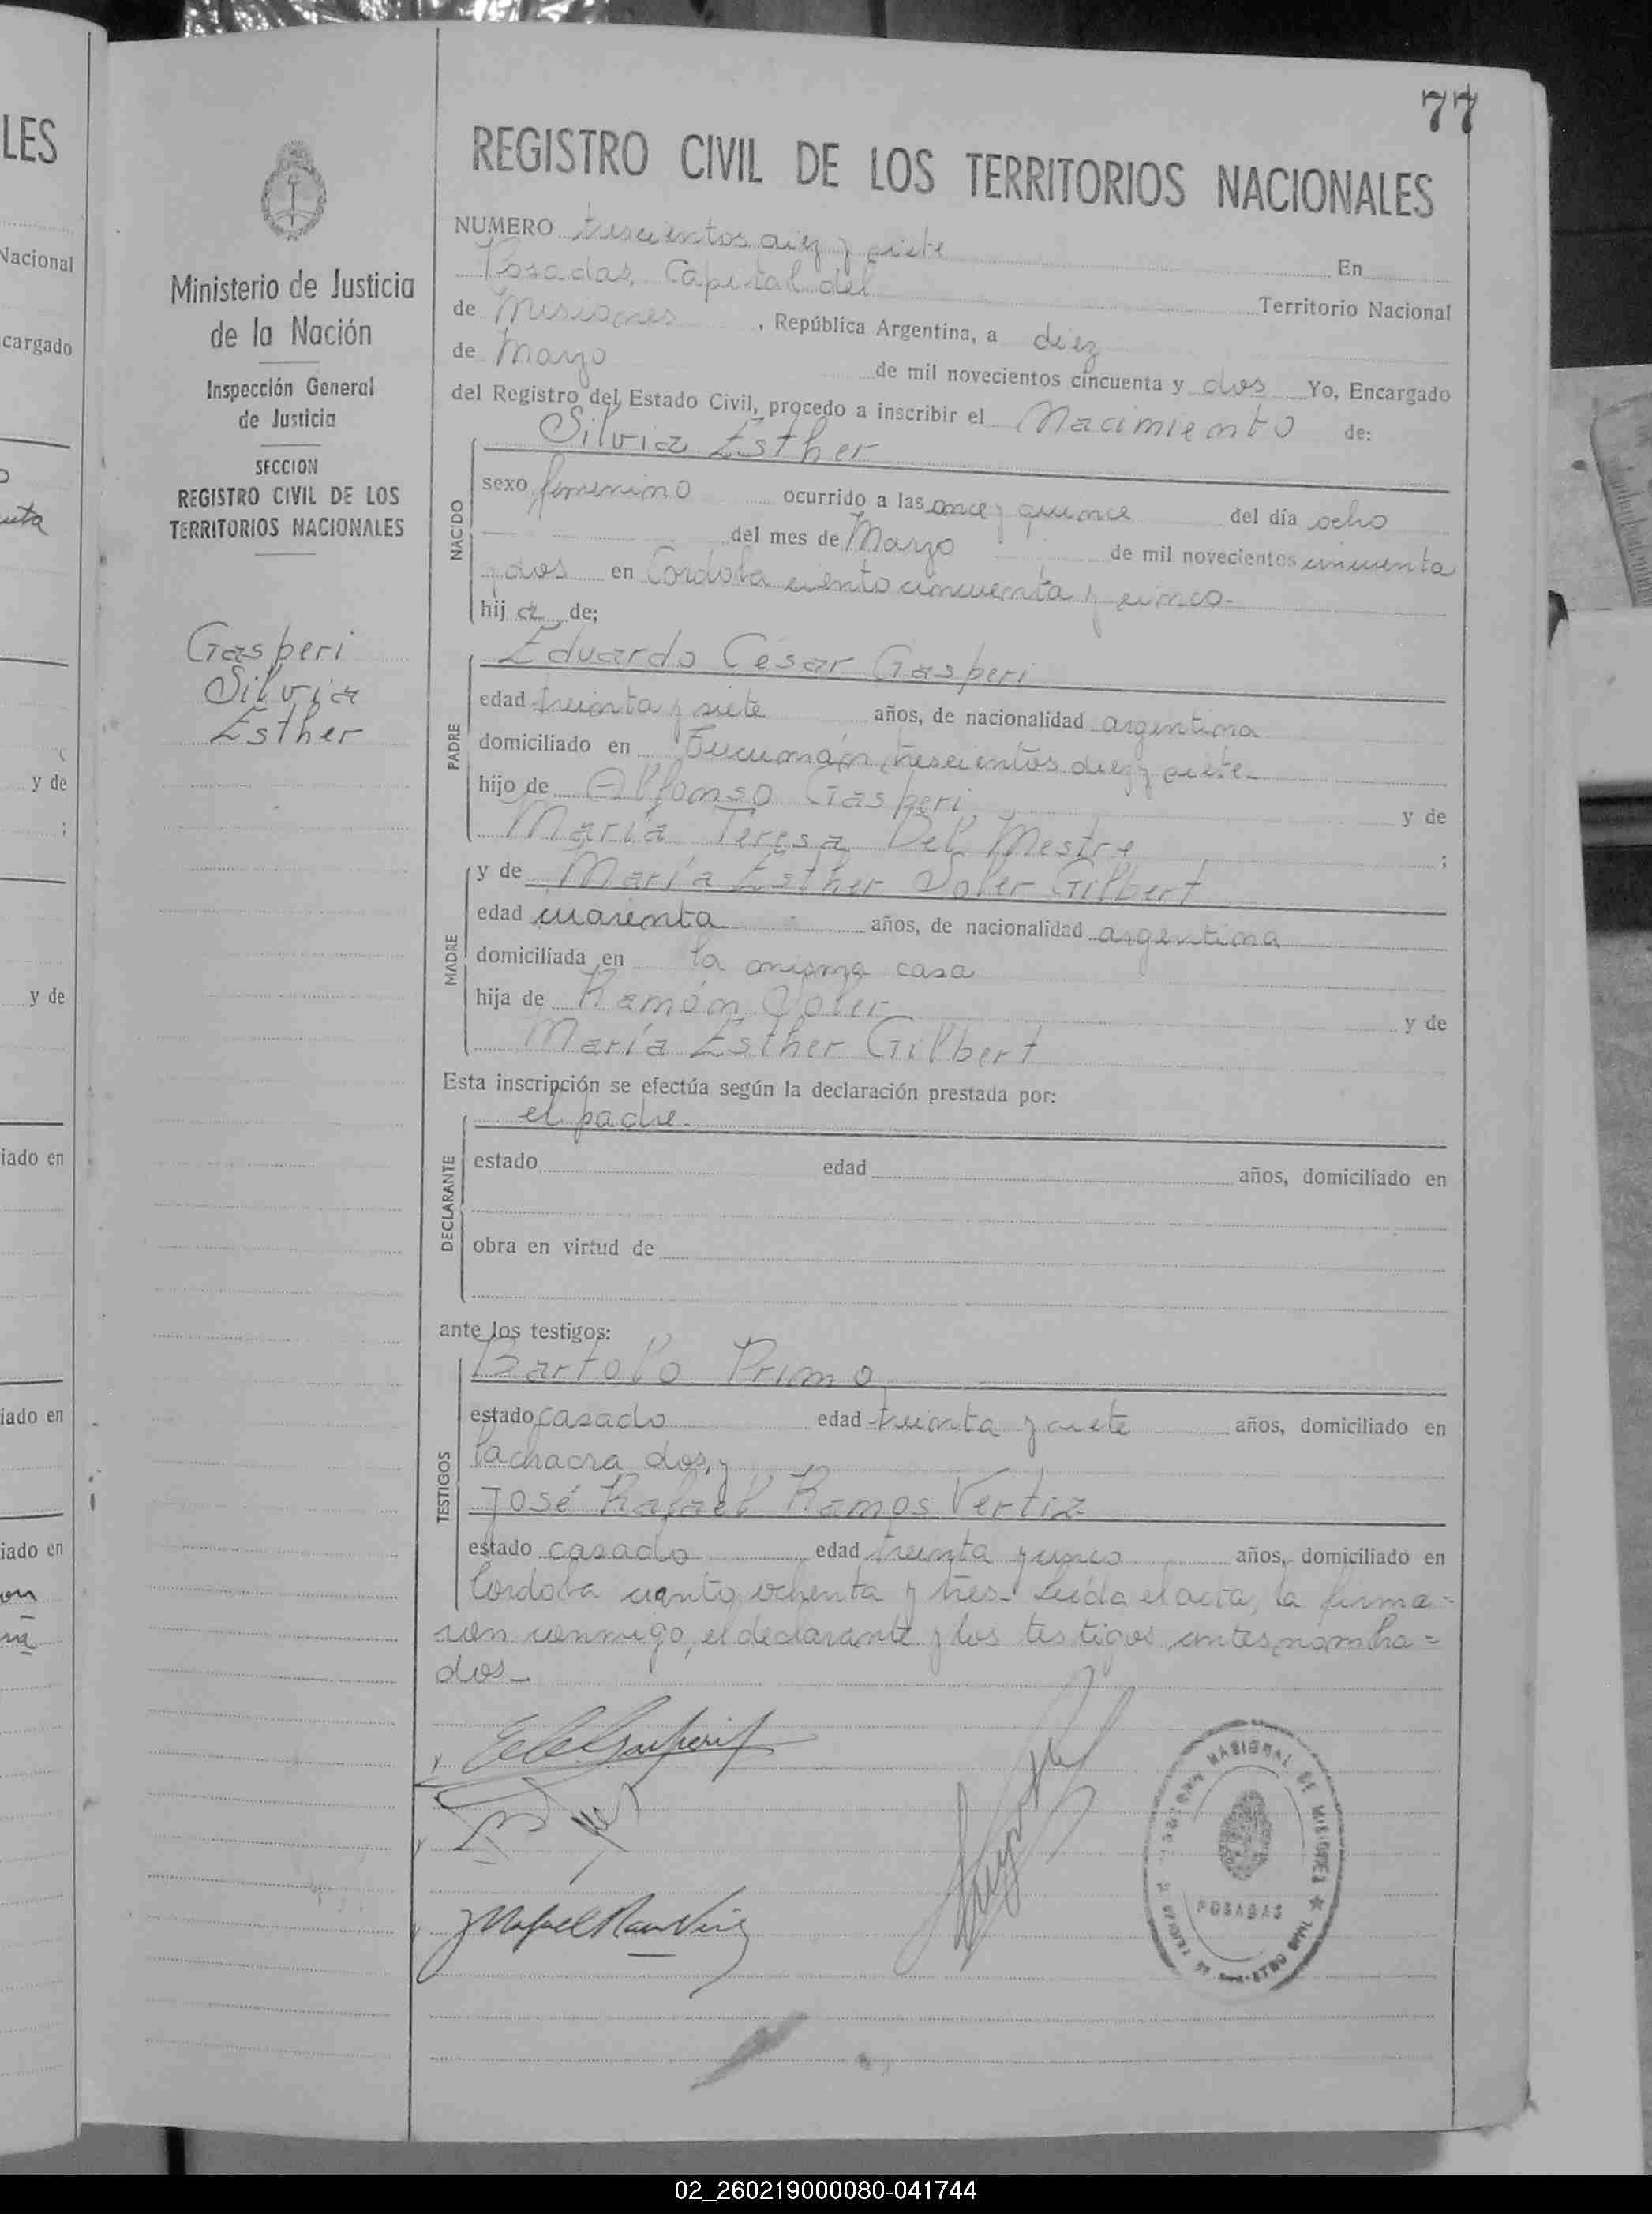 77
REGISTRO CIVIL DE LOS TERRITORIOS NACIONALES
NUMERO trescientos diez y siete
En
Posadas, Capital del Territorio Nacional
de Misiones, República Argentina, a diez
de Marzo de mil novecientos cincuenta y dos Yo, Encargado
del Registro del Estado Civil, procedo a inscribir el Nacimiento de:
Silvia Esther
NACIDO
sexo femenino ocurrido a las once y quince del día ocho
del mes de Marzo de mil novecientos cincuenta
y dos en Cordoba ciento cincuenta y cinco-
hija de;
Eduardo César Gasperi
PADRE
edad treinta y siete años, de nacionalidad argentina
domiciliado en Tucumán, trescientos diez y siete-
hijo de Alfonso Gasperi, y de
María Teresa Del Mestre ;
y de María Esther Soler Gilbert
MADRE
edad cuarenta años, de nacionalidad argentina
domiciliada en la misma casa
hija de Ramón Soler y de
María Esther Gilbert
Esta inscripción se efectúa según la declaración prestada por:
el padre-
DECLARANTE
estado edad años, domiciliado en
obra en virtud de
ante los testigos:
Bartolo Primo
TESTIGOS
estado casado edad treinta y siete años, domiciliado en
la chacra dos, y
José Rafael Ramos Vertiz
estado casado edad treinta y cinco años, domiciliado en
Cordoba ciento ochenta y tres- Leída el acta, la firma=
ron conmigo, el declarante y los testigos antes nombra=
dos-
Ministerio de Justicia
de la Nación
Inspección General
de Justicia
SECCION
REGISTRO CIVIL DE LOS
TERRITORIOS NACIONALES
Gasperi
Silvia
Esther
LES
Nacional
cargado
y de
;
y de
iado en
iado en
iado en
NACIONAL DE MISIONES
POSADAS
02_260219000080-041744